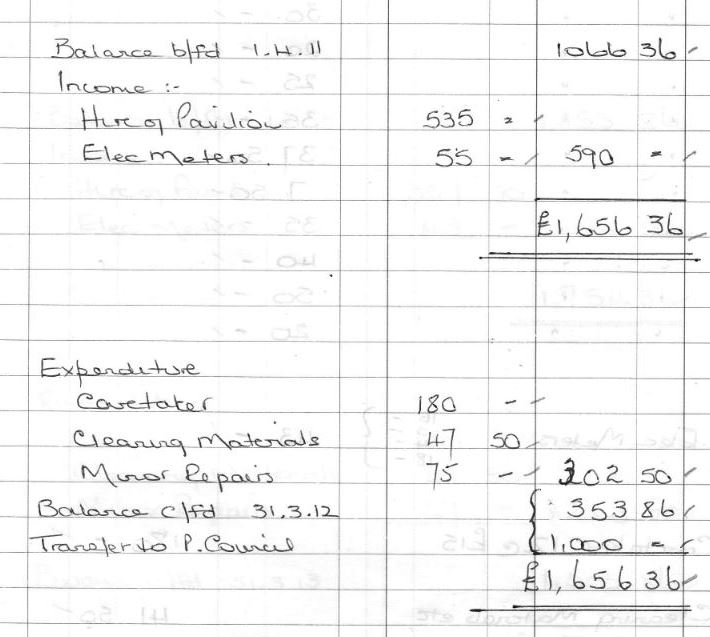 Balance b/fd 1.4.11 1066 36
Income :-
Hire of Pavilion 535 =
Elec Meters. 55 - 590 =
£1,656 36
Expenditure
Caretaker 180 -
Cleaning Materials 47 50
Minor Repairs 75 - 302 50
Balance c/fd 31.3.12 353 86
Transfer to P. Council 1,000 =
£1,656 36